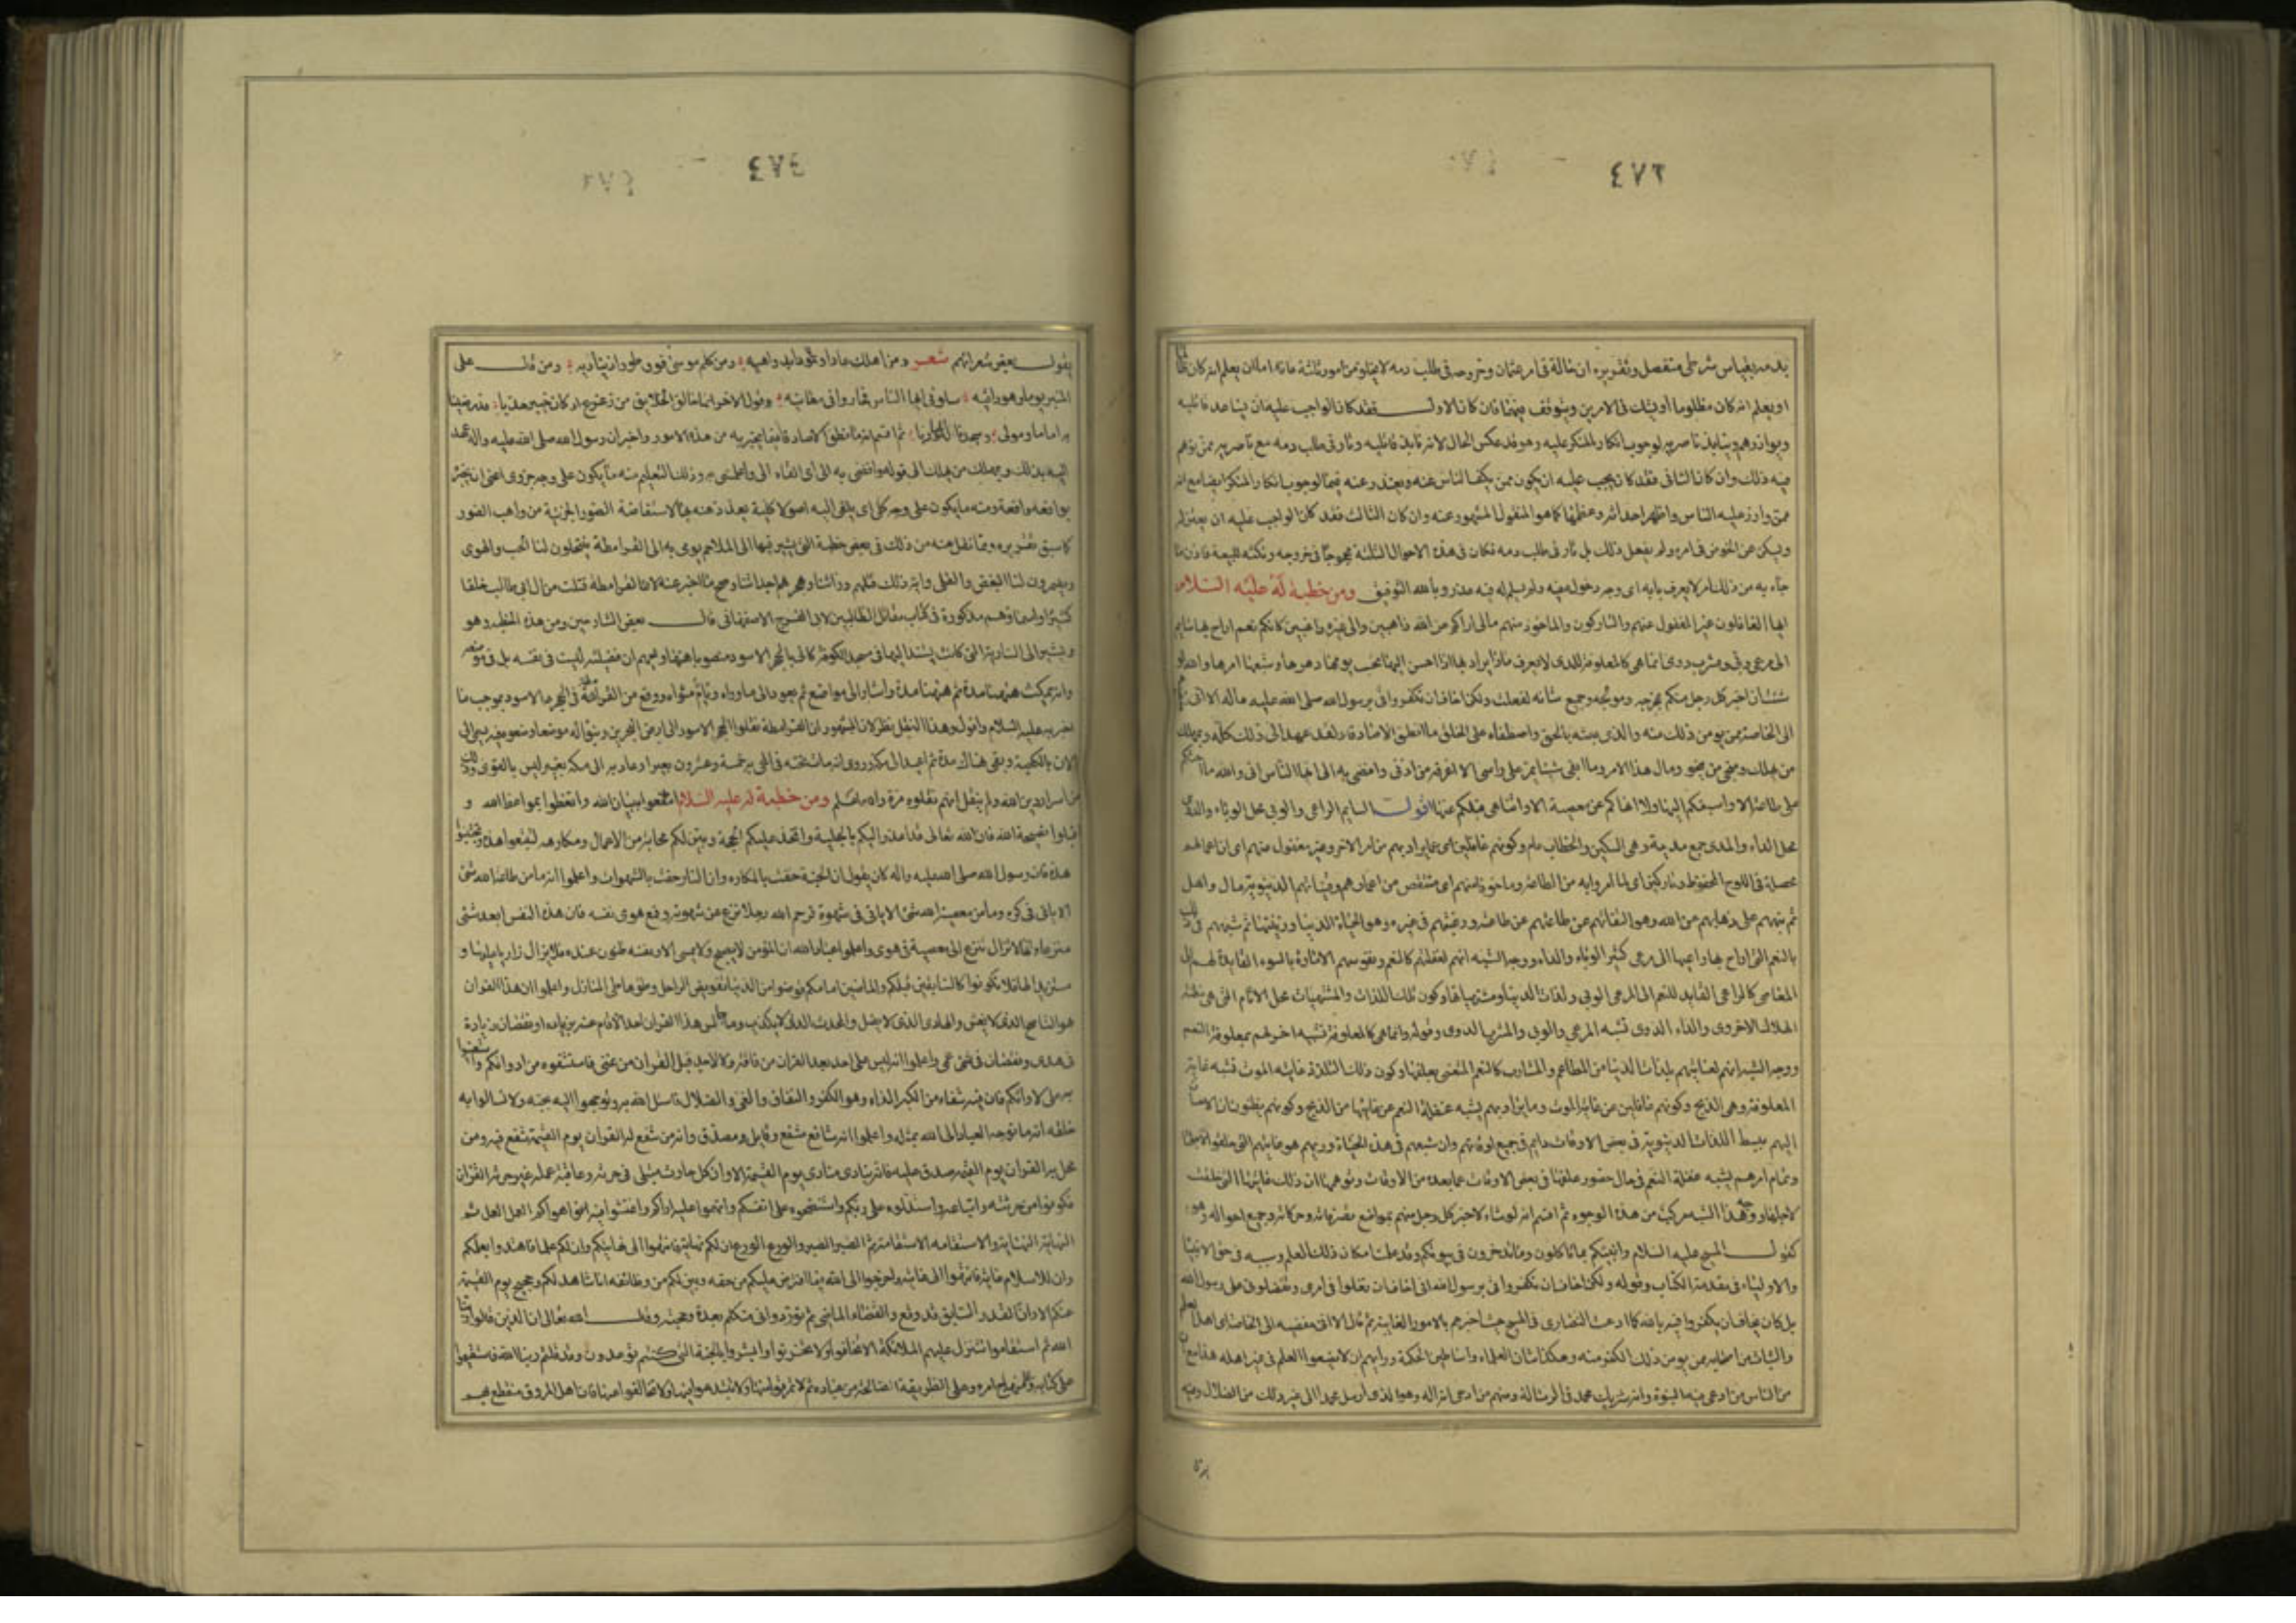 ٤٧٢
اويعلم انه كان مظلوما أو يشك فى الامرين ويتوقف فيهما فان كان الاول فقد كان الواجب عليه ان يساعد قاتليه
ويوازرهم وينابذ ناصريه لوجوب انكار المنكر عليه وهو قد عكس الحال لانه نابذ قاتليه وثار فى طلب دمه مع ناصريه ممن توهم
فيه ذلك وان كان الثانى فقد كان يجب عليه ان يكون ممن يكف الناس عنه ويعتذر عنه فيما لوجوب انكار المنكر ايضا مع انه
ممن وازر عليه الناس واظهر احداثه وعظمها كما هو المنقول المشهور عنه وان كان الثالث فقد كان الواجب عليه ان يعتزله
ويسكن عن الخوض فى امره ولم يفعل ذلك بل ثار فى طلب دمه فكان فى هذه الاحوال الثلثة محجوجا فى خروجه ونكثه للبيعة فاذن ما
جاء به من ذلك امر لا يعرف بابه اى وجه دخوله فيه ولم يسلم له فيه عذر وبالله التوفيق ومن خطبة له عليه السلام
ايها الغافلون غير المغفول عنهم والتاركون والماخوذ منهم مالى اراكم عن الله ذاهبين والى غيره راغبين كانكم نعم اراح بها سايم
الى مرعى وبى ومشرب دوى انما هى كالمعلوفة للمدى لا تعرف ماذا يراد بها اذا احسن اليها تحسب يومها دهرها وشبعها امرها والله لو
شئت ان اخبر كل رجل منكم بمخرجه ومولجه وجميع شانه لفعلت ولكن اخاف ان تكفروا فى برسول الله صلى الله عليه واله الا انى
الى الخاصة ممن يؤمن ذلك منه والذى بعثه بالحق واصطفاه على الخلق ما انطق الا صادقا ولقد عهد الى ذلك كله وبمهلك
من يهلك ومنجى من ينجو ومال هذا الامر وما ابقى شيئا يمر على راسى الا افرغه فى اذنى وافضى به الى ايها الناس انى والله ما احثكم
على طاعة الا واسبقكم اليها ولا انهاكم عن معصية الا واتناهى قبلكم عنها اقول السايم الراعى والوبى محل الوباء والدوى
محل الداء والمدى جمع مدية وهى السكين والخطاب عام وكونهم غافلين اى عما يراد بهم من امر الاخرة وغير مغفول عنهم اى ان اعمالهم
محصلة فى اللوح المحفوظ وتاركين اى لما امروا به من الطاعة وماخوذ منهم اى منتقص من اعمارهم وقيناتهم الدنيوية من مال واهل
ثم نبههم على ذهابهم عن الله وهو التفاتهم عن طاعته ورغبتهم فى غيره وهو الحياة الدنيا وزينتها ثم شبههم فى ذلك
بالنعم التى اراح بها راعيها الى مرعى كثير الوباء والداء ووجه الشبه انهم لغفلتهم كالنعم ونفوسهم الامارة بالسوء القايدة لهم الى
المعاصى كالراعى القايد للنعم الى المرعى الوبى ولذات الدنيا ومشتهياتها وكون تلك اللذات والمشتهيات محل الاثام التى هى مظنة
الهلاك الاخروى والداء الدوى تشبه المرعى الوبى والمشرب الدوى وقوله وانما هى كالمعلوفة تشبيه اخر لهم بمعلوفة النعم
ووجه الشبه انهم لعنايتهم بلذات الدنيا من المطاعم والمشارب كالنعم المعتنى بعلفها وكون ذلك التلذذ غايته الموت تشبه غاية
المعلوفة وهى الذبح وكونهم غافلين عن غاية الموت وما يراد بهم يشبه غفلة النعم عن غايتها من الذبح وكونهم يظنون ان الاحسان
اليهم ببسط اللذات الدنيوية فى بعض الاوقات دايم فى جميع اوقاتهم وان شبعهم فى هذه الحياة وريهم هو غايتهم التى خلقوا لاجلها
وتمام امرهم يشبه غفلة النعم فى حال حضور علفها فى بعض الاوقات عما بعده من الاوقات وتوهمها ان ذلك غايتها التى خلقت
لاجلها ووجه هذا الشبه مركب من هذه الوجوه ثم اقسم انه لو شاء لاخبر كل رجل منهم بمواضع تصرفاته وحركاته وجميع احواله وهو
كقول المسيح عليه السلام وانبئكم بما تاكلون وما تدخرون فى بيوتكم وقد علمت امكان ذلك العلم وسببه فى حق الانبياء
والاولياء فى مقدمة الكتاب وقوله ولكن اخاف ان تكفروا فى برسول الله اى اخاف ان تغلوا فى امرى وتفضلونى على رسول الله
بل كان يخاف ان يكفروا فيه بالله كما ادعت النصارى فى المسيح حيث اخبرهم بالامور الغايبة ثم قال الا انى مفضيه الى الخاصة اى اهل العلم
والثبات من اصحابه ممن يؤمن ذلك الكفر منه وهكذا شان العلماء واساطين الحكمة ورايهم ان لا يضعوا العلم فى غير اهله هذا مع ان
من الناس من ادعى فيه النبوة وانه شريك محمد فى الرسالة ومنهم من ادعى انه اله وهو الذى ارسل محمدا الى غير ذلك من الضلال وفيه
٤٧٣
يقول بعض شعرائهم شعر ومن اهلك عادا وثمودا بدواهيه ومن كلم موسى فوق طور اذ يناديه ومن قال على
المنبر يوما وهو راقيه سلونى ايها الناس فحاروا فى معانيه وقول الاخر انما خالق الخلايق من زعزع اركان خيبر جذبا قد رضينا
به اماما ومولى وسجدنا له الها وربا ثم اقسم انه ما نطق الا صادقا فيما يخبر به من هذه الامور واخبر ان رسول الله صلى الله عليه واله عهد
اليه بذلك وبمهلك من يهلك الى قوله وافضى به الى اى القاه الى واعلمنى به وذلك التعليم منه ما يكون على وجه جزوى اعنى ان يخبر
بواقعة واقعة ومنه ما يكون على وجه كلى اى يلقى اليه اصولا كلية يعد ذهنه بها لاستفاضة الصور الجزئية من واهب الصور
كما سبق تقريره ومما نقل عنه من ذلك فى بعض خطبه التى يشير فيها الى الملاحم يومى به الى القرامطة ينتحلون لنا الحب والهوى
ويضمرون لنا البغض والقلى واية ذلك قتلهم وراثنا وهجرهم احداثنا وصح ما اخبر عنه لان القرامطة قتلت من ال ابى طالب خلقا
كثيرا واسماؤهم مذكورة فى كتاب مقاتل الطالبيين لابى الفرج الاصفهانى قال بعض الشارحين ومن هذه الخطبة وهو
ويشير الى السارية التى كان يستند اليها فى مسجد الكوفة كانى بالحجر الاسود منصوبا ههنا ويحهم ان فضيلته ليست فى نفسه بل فى موضعه
وانه يمكث ههنا مدة ثم ههنا مدة واشار الى مواضع ثم يعود الى ماواه وتام مثواه ووقع من القرامطة فى الحجر الاسود بموجب ما
اخبر به عليه السلام واقول وهذا النقل نظر لان المشهور ان القرامطة نقلوا الحجر الاسود الى ارض البحرين وبنوا له موضعا وضعوه فيه يسمى الى
الان بالكعبة وبقى هناك مدة ثم اعيد الى مكة وروى انه مات تحته فى المجى به خمسة وعشرون بعيرا وعاد به الى مكة بعير ليس بالقوى وذلك
من اسرار دين الله ولم ينقل انهم نقلوه مرة والله اعلم ومن خطبة له عليه السلام انتفعوا ببيان الله واتعظوا بمواعظ الله و
اقبلوا نصيحة الله فان الله تعالى قد اعذر اليكم بالجلية واتخذ عليكم الحجة وبين لكم محابه من الاعمال ومكارهه لتتبعوا هذه وتجتنبوا
هذه فان رسول الله صلى الله عليه واله كان يقول ان الجنة حفت بالمكاره وان النار حفت بالشهوات واعلموا انه ما من طاعة الله شئ
الا ياتى فى كره وما من معصية الله شئ الا ياتى فى شهوة فرحم الله رجلا نزع عن شهوته وقمع هوى نفسه فان هذه النفس ابعد شئ
منزعا وانها لا تزال تنزع الى معصية فى هوى واعلموا عباد الله ان المؤمن لا يصبح ولا يمسى الا ونفسه ظنون عنده فلا يزال زاريا عليها و
مستزيدا لها فلا تكونوا كالسابقين قبلكم والماضين امامكم قوضوا من الدنيا تقويض الراحل وطووها طى المنازل واعلموا ان هذا القران
هو الناصح الذى لا يغش والهادى الذى لا يضل والمحدث الذى لا يكذب وما جالس هذا القران احد الا قام عنه بزيادة او نقصان زيادة
فى هدى ونقصان فى عمى واعلموا انه ليس على احد بعد القران من فاقة ولا لاحد قبل القران من غنى فاستشفوه من ادوائكم واستعينوا
به على لاوائكم فان فيه شفاء من اكبر الداء وهو الكفر والنفاق والغى والضلال فاسئلوا الله به وتوجهوا اليه بحبه ولا تسالوا به
خلقه انه ما توجه العباد الى الله بمثله واعلموا انه شافع مشفع وقايل ومصدق وانه من شفع له القران يوم القيمة شفع فيه ومن
محل به القران يوم القيمة صدق عليه فانه ينادى مناد يوم القيمة الا وان كل حارث مبتلى فى حرثه وعاقبة عمله غير حرثة القران
فكونوا من حرثته واتباعه واستدلوه على ربكم واستنصحوه على انفسكم واتهموا عليه اراءكم واغتشوا فيه اهواءكم العمل العمل ثم
النهاية النهاية والاستقامة الاستقامة ثم الصبر الصبر والورع الورع ان لكم نهاية فانتهوا الى نهايتكم وان لكم علما فاهتدوا بعلمكم
وان للاسلام غاية فانتهوا الى غايته واخرجوا الى الله مما افترض عليكم من حقه وبين لكم من وظائفه انا شاهد لكم وحجيج يوم القيمة
عنكم الا وان القدر السابق قد وقع والقضاء الماضى قد تورد وانى متكلم بعدة الله وحجته قال الله تعالى ان الذين قالوا ربنا
الله ثم استقاموا تتنزل عليهم الملائكة الا تخافوا ولا تحزنوا وابشروا بالجنة التى كنتم توعدون وقد قلتم ربنا الله فاستقيموا
على كتابه وعلى منهاج امره وعلى الطريقة الصالحة من عبادته ثم لا تمرقوا منها ولا تبتدعوا فيها ولا تخالفوا عنها فان اهل المروق منقطع بهم